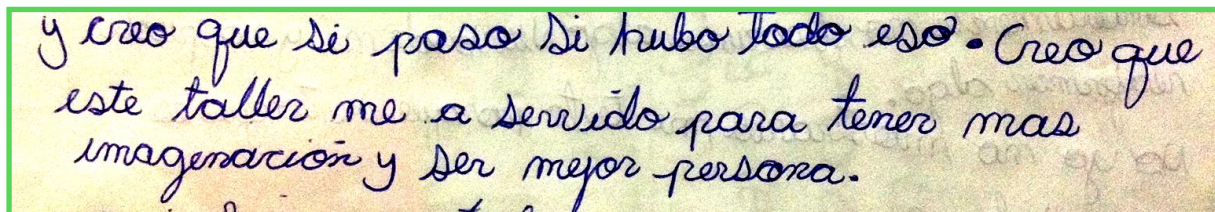 y creo que si paso si hubo todo eso. Creo que
este taller me a servido para tener mas
imagenación y ser mejor persona.